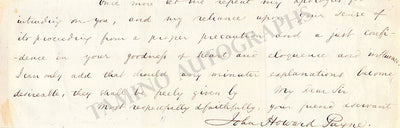 Once more let me repeat my apologies for
intruding on you, and my reliance upon your sense of
its proceeding from a proper precaution and a just confi-
dence in your goodness of heart and eloquence and influence.
I can only add that should any minuter explanations become
desireable, they shall be freely given by My Dear Sir
Most respectfully & faithfully, your friend & servant
John Howard Payne.
TAMINO AUTOGRAPHS